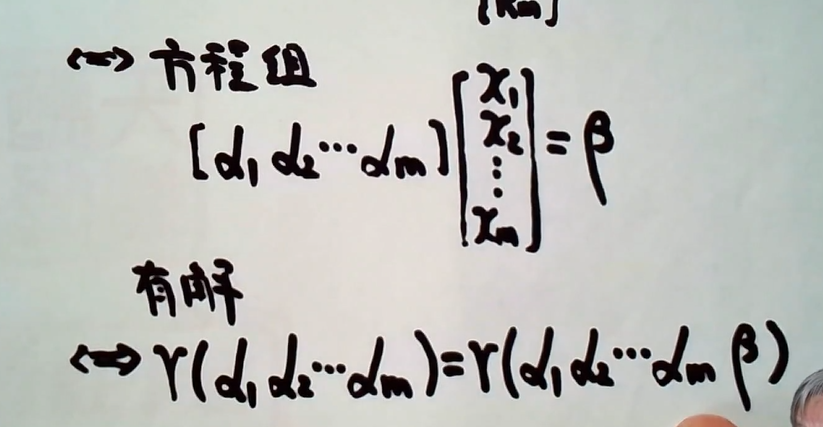 [km]
⟺ 方程组
[α₁ α₂ ⋯ αₘ] [x₁ x₂ ⋮ xₘ] = β
有解
⟺ r(α₁ α₂ ⋯ αₘ) = r(α₁ α₂ ⋯ αₘ β)